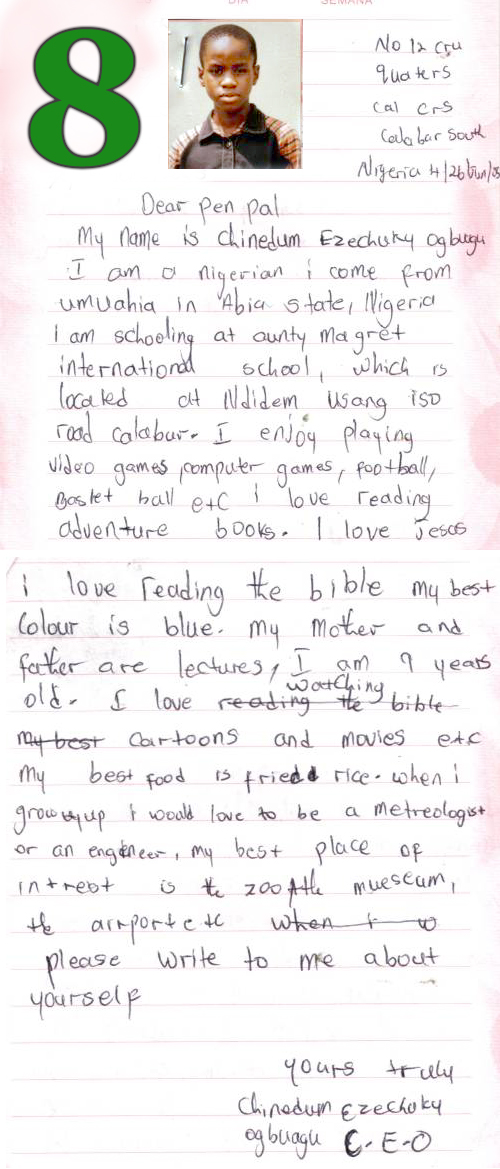 DIA SEMANA
8
No 12 cru
quaters
cal crs
Calabar south
Nigeria 4/26/Jun/
Dear pen pal
My name is chinedum Ezechuky ogbuagu
I am a nigerian i come from
umuahia in Abia state, Nigeria
I am schooling at aunty magret
international school, which is
located at Ndidem usang iso
road calabar. I enjoy playing
video games, computer games, football,
Basket ball etc i love reading
adventure books. I love Jesos
i love reading the bible my best
Colour is blue. my mother and
father are lectures, I am 9 years
watching
old. I love reading the bible
my best cartoons and movies etc
my best food is fried rice. when i
grow up i would love to be a metreologist
or an engineer, my best place of
intrest is the zoo, the mueseum,
the airport etc when i w
please write to me about
yourself
yours truly
Chinedum Ezechuky
ogbuagu C-E-O